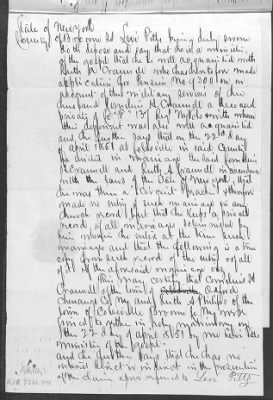 State of New York
County of Broome SS Levi Pitts being duly sworn
doth depose and say that he is a minister
of the gospel that he is well acquainted with
Ruth A Crandall who has heretofore made
application for Pension No 300
account of the military services of her
husband Cornelius H. Crandall a deceased
private of Co "B" Regt Vols with whom
this deponent was also well acquainted
and he further says that on the 22d day of
April 1851 at Colesville in said County
he united in marriage the said Cornelius
H Crandall and Ruth A Crandall in accordance
with the laws of the State of New York, that
he was then a Circuit Preacher &
made no entry of such marriage in any
church record but that he keeps a private
record of all marriages solemnized by
him wherein he enters at the time such
marriages and that the following is a true
copy from such record of the entry of
of the aforesaid marriage viz
This may certify that Cornelius H
Crandall of the town of Oxford
Chenango Co. Ny and Ruth A Phillips of the
town of Colesville Broome Co Ny were
joined together in holy matrimony on
the 22 day of April 1851 by me Levi Pitts
minister of the gospel-
and he further says that he has no
interest direct or indirect in the prosecution
of the claim above referred to Levi Pitts